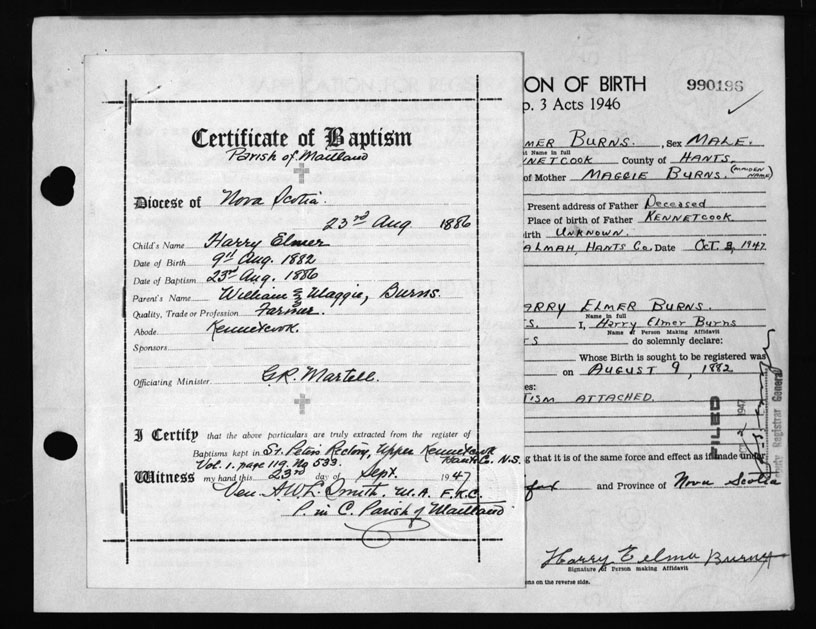 Certificate of Baptism
Parish of Maitland
Diocese of Nova Scotia
23rd Aug 1886
Child's Name Harry Elmer
Date of Birth 9th Aug. 1882
Date of Baptism 23rd Aug. 1886
Parent's Name William & Maggie, Burns.
Quality, Trade or Profession Farmer.
Abode Kennetcook.
Sponsors
Officiating Minister G.R. Martell.
I Certify that the above particulars are truly extracted from the register of
Baptisms kept in St. Peters Rectory, Upper Kennetcook
Hants Co. N.S.
Vol. 1. page 119. No 533.
Witness my hand this 23rd day of Sept. 1947
Ven. A.W.L. Smith, M.A. F.K.C.
P. in C. Parish of Maitland
ON OF BIRTH 990196
p. 3 Acts 1946
MER BURNS. , Sex MALE.
Name in full
NNETCOOK County of HANTS.
of Mother MAGGIE BURNS. (MAIDEN NAME)
Present address of Father Deceased
Place of birth of Father KENNETCOOK
irth UNKNOWN.
ALMAH, HANTS Co. Date OCT. 8, 1947.
ARRY ELMER BURNS.
Name in full
S. I, Harry Elmer Burns
Name of Person Making Affidavit
TS do solemnly declare:
Whose Birth is sought to be registered was
on AUGUST 9, 1882
es:
TISM ATTACHED.
FILED
1947
Deputy Registrar General
g that it is of the same force and effect as if made under
fax and Province of Nova Scotia
Harry Elmer Burns
Signature of Person making Affidavit
ons on the reverse side.